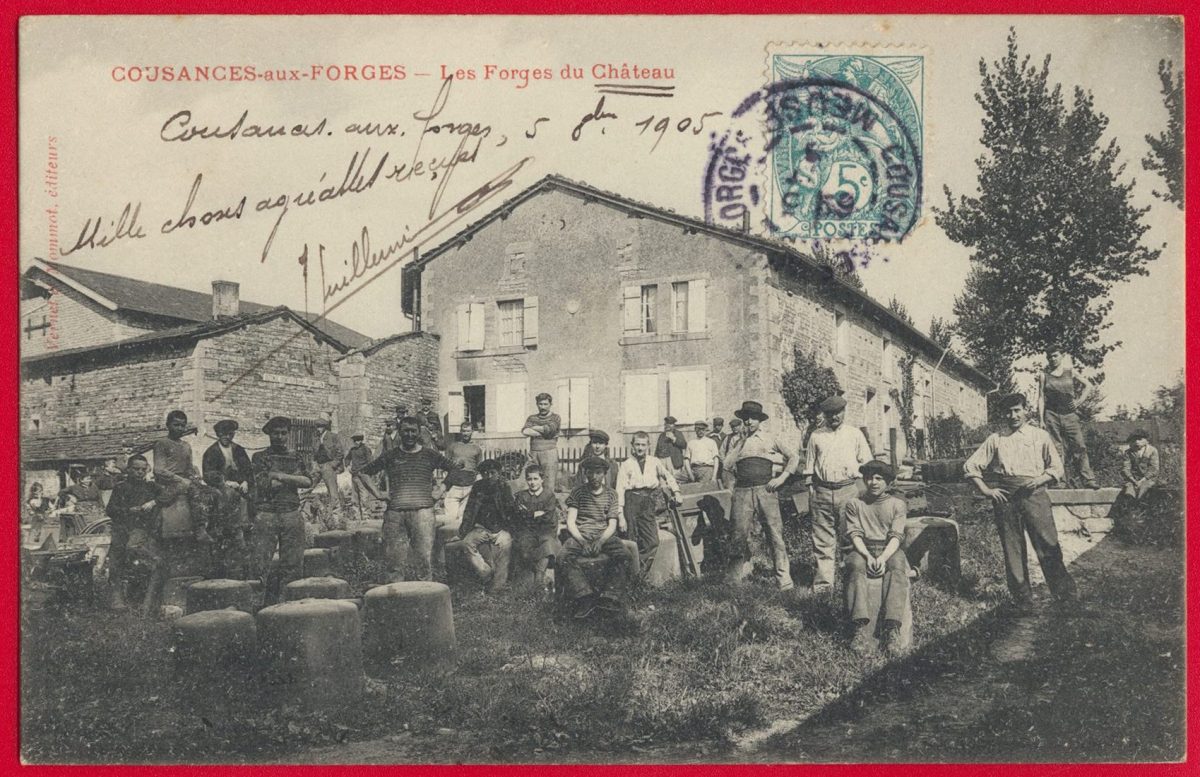 COUSANCES-aux-FORGES — Les Forges du Château
Cousances. aux. forges, 5 8bre 1905
Mille choses agréables reçues
Vuillemin
éditeurs
MEUSE
COUSA
FORGES
5c
POSTES